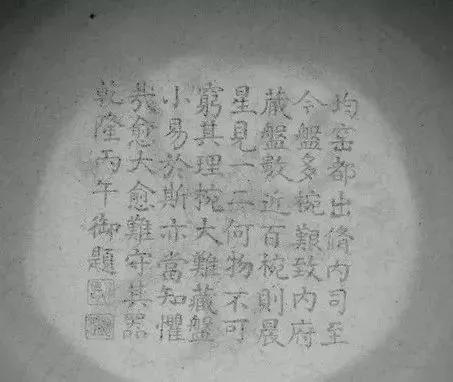 均窑都出脩内司至
今盤多椀艱致内府
藏盤數近百椀則晨
星見一二何物不可
窮其理椀大難藏盤
小易於斯亦當知懼
㢤愈大愈難守其器
乾隆丙午御題